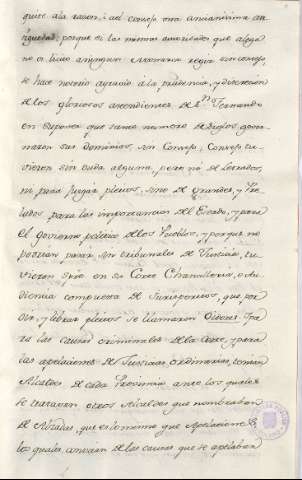 quiere a la razon: del Consejo otra antianisima an
tiguedad; porque es los mismos autoridades que alega
no es licito a ninguno Monarca regir sin consejo,
se hace notorio agravio à la prudencia, y discrecion
de los gloriosos ascendientes de Sn. Fernando
en suponer que tanto numero de siglos gover
naron sus dominios, sin Consejo; Consejo tu
vieron sin duda alguna, pero nó de Letrados,
ni para juzgar pleitos, sino de grandes, y Pre
lados, para las importancias del Estado, y para
el govierno politico de los Pueblos, y porque no
podian pasar sin tribunales de Justicia, tu
vieron spre en su Corte Chancilleria, o Au
diencia compuesta de Jurisperitos, que por
oir, y librar pleitos se llamaron Oidores: Pa
ra las causas criminales de la Corte, y para
las apelaciones de Justicias ordinarias, tenian
Alcaldes de cada Provincia ante los quales
se trataban otros Alcaldes que nombraban
de Alzadas, que es lo mismo que Apelaciones,
los quales conocian de las causas que se apelaban